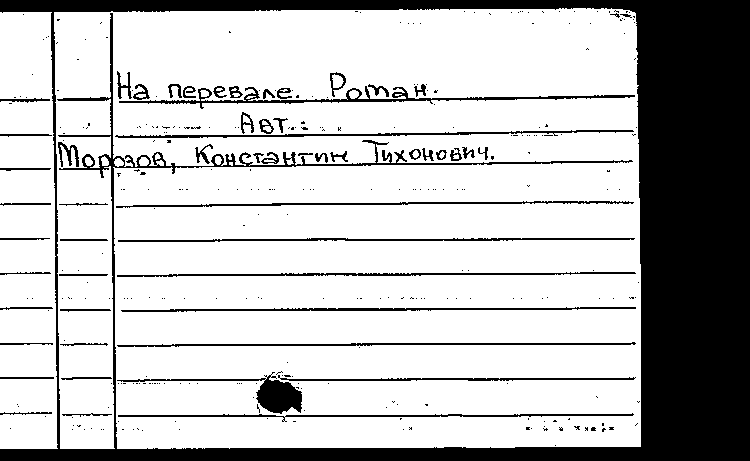 На перевале. Роман.
Авт.:
Морозов, Константин Тихонович.